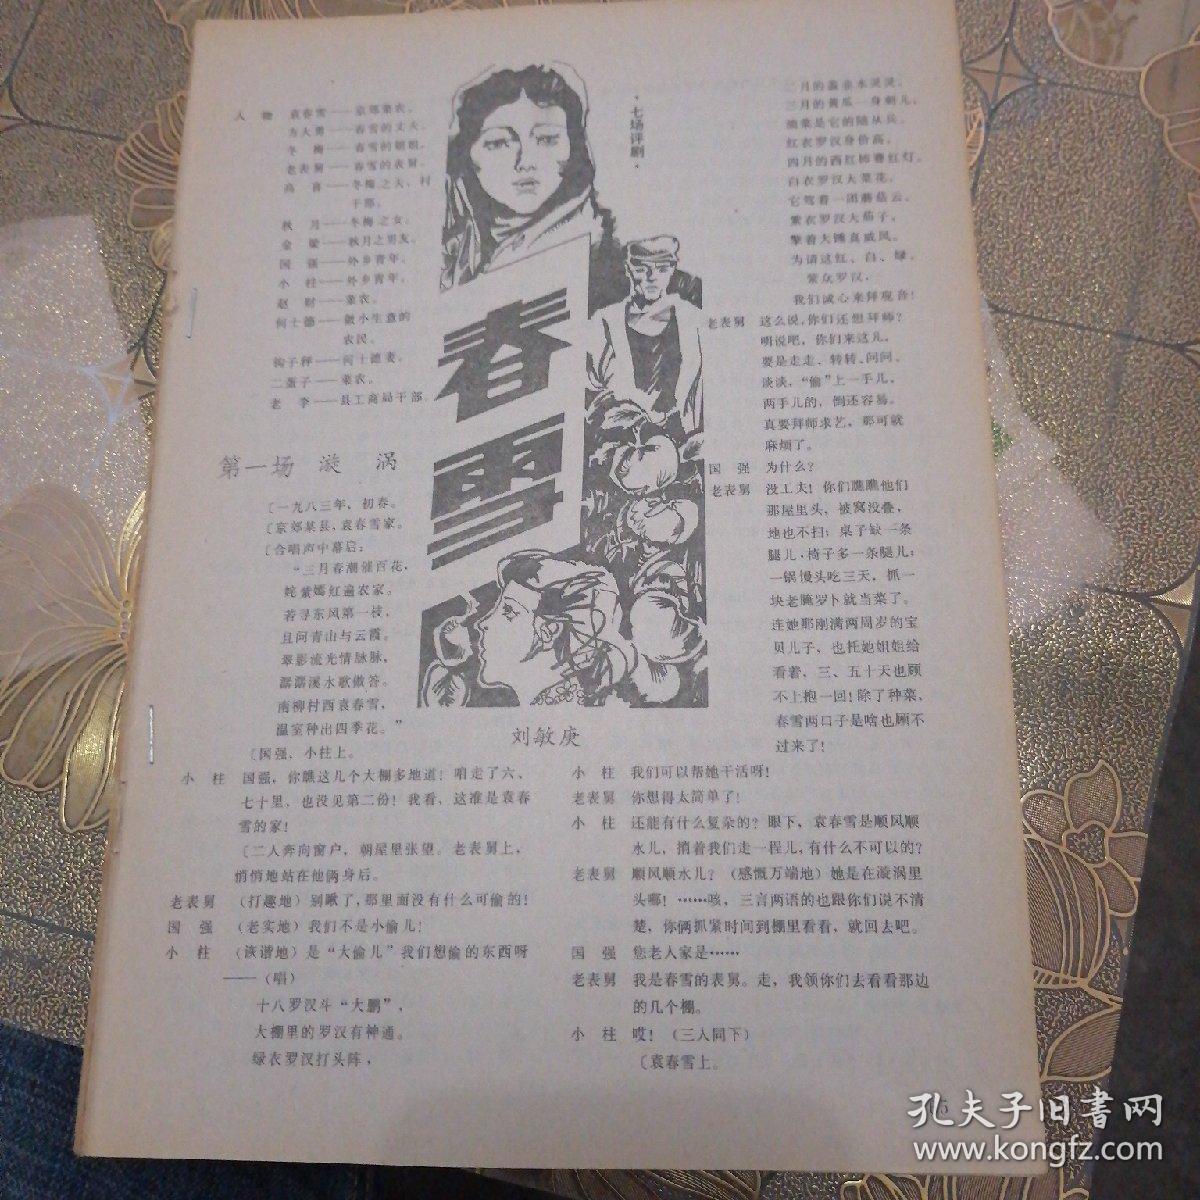 人　物　袁春雪——京郊菜农。
方大勇——春雪的丈夫。
冬　梅——春雪的姐姐。
老表舅——春雪的表舅。
高　喜——冬梅之夫，村
干部。
秋　月——冬梅之女。
金　梁——秋月之男友。
国　强——外乡青年。
小　柱——外乡青年。
赵　财——菜农。
何士德——做小生意的
农民。
钩子秤——何士德妻。
二蛋子——菜农。
老　李——县工商局干部。
·七场评剧·
春雪
刘敏庚
第一场　漩　涡
〔一九八三年，初春。
〔京郊某县，袁春雪家。
〔合唱声中幕启：
“三月春潮催百花，
姹紫嫣红遍农家。
若寻东风第一枝，
且问青山与云霞。
翠影流光情脉脉，
潺潺溪水歌做答。
南柳村西袁春雪，
温室种出四季花。”
〔国强、小柱上。
小　柱　国强，你瞧这几个大棚多地道！咱走了六、
七十里，也没见第二份！我看，这准是袁春
雪的家！
〔二人奔向窗户，朝屋里张望。老表舅上，
悄悄地站在他俩身后。
老表舅　（打趣地）别瞅了，那里面没有什么可偷的！
国　强　（老实地）我们不是小偷儿！
小　柱　（诙谐地）是“大偷儿”我们想偷的东西呀
——（唱）
十八罗汉斗“大鹏”，
大棚里的罗汉有神通。
绿衣罗汉打头阵，
二月的韭菜水灵灵。
三月的黄瓜一身刺儿，
油菜是它的随从兵。
红衣罗汉身价高，
四月的西红柿赛红灯。
白衣罗汉大菜花，
它驾着一团蘑菇云。
紫衣罗汉大茄子，
擎着大锤真威风。
为请这红、白、绿、
紫众罗汉，
我们诚心来拜观音！
老表舅　这么说，你们还想拜师？
明说吧，你们来这儿，
要是走走、转转、问问、
谈谈，“偷”上一手儿、
两手儿的，倒还容易。
真要拜师求艺，那可就
麻烦了。
国　强　为什么？
老表舅　没工夫！你们瞧瞧他们
那屋里头，被窝没叠，
地也不扫；桌子缺一条
腿儿，椅子多一条腿儿；
一锅馒头吃三天，抓一
块老腌萝卜就当菜了。
连她那刚满两周岁的宝
贝儿子，也托她姐姐给
看着，三、五十天也顾
不上抱一回！除了种菜，
春雪两口子是啥也顾不
过来了！
小　柱　我们可以帮她干活呀！
老表舅　你想得太简单了！
小　柱　还能有什么复杂的？眼下，袁春雪是顺风顺
水儿，捎着我们走一程儿，有什么不可以的？
老表舅　顺风顺水儿？（感慨万端地）她是在漩涡里
头哪！……咳，三言两语的也跟你们说不清
楚，你俩抓紧时间到棚里看看，就回去吧。
国　强　您老人家是……
老表舅　我是春雪的表舅。走，我领你们去看看那边
的几个棚。
小　柱　哎！（三人同下）
〔袁春雪上。
孔夫子旧书网
www.kongfz.com